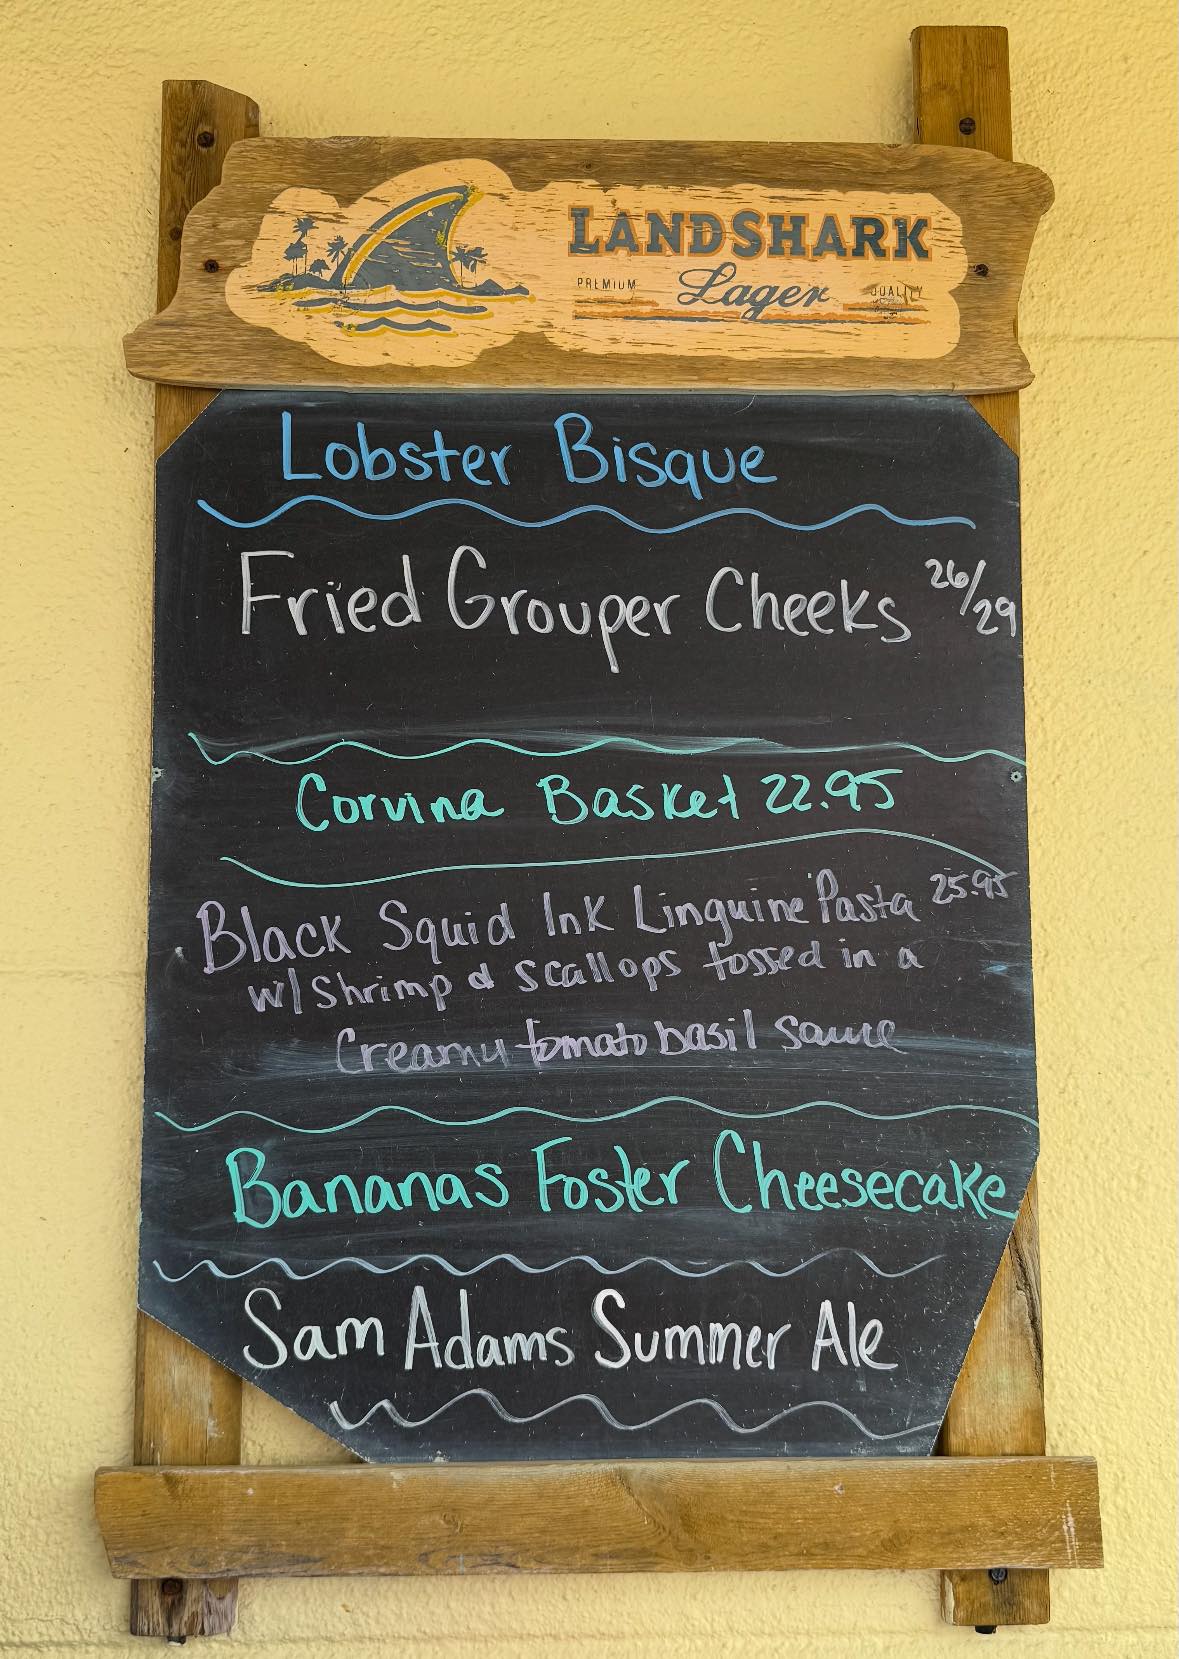 LANDSHARK
PREMIUM Lager QUALITY
Lobster Bisque
Fried Grouper Cheeks 26/29
Corvina Basket 22.95
Black Squid Ink Linguine Pasta 25.95
w/ Shrimp & scallops tossed in a
Creamy tomato basil sauce
Bananas Foster Cheesecake
Sam Adams Summer Ale